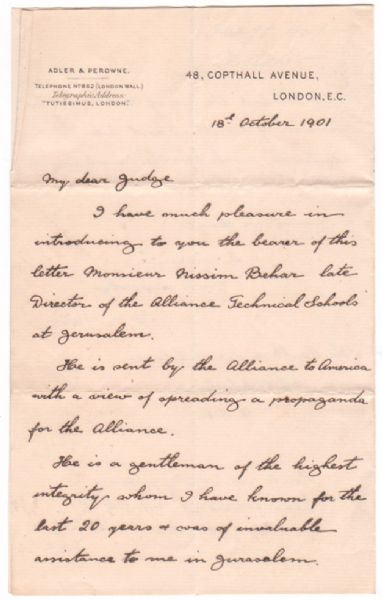 ADLER & PEROWNE.
TELEPHONE Nº 882 (LONDON WALL)
Telegraphic Address
"TUTISSIMUS, LONDON."
48, COPTHALL AVENUE,
LONDON, E.C.
18th October 1901
My dear Judge
I have much pleasure in
introducing to you the bearer of this
letter Monsieur Nissim Behar late
Director of the Alliance Technical Schools
at Jerusalem.
He is sent by the Alliance to America
with a view of spreading a propaganda
for the Alliance.
He is a gentleman of the highest
integrity whom I have known for the
last 20 years & was of invaluable
assistance to me in Jurasalem.